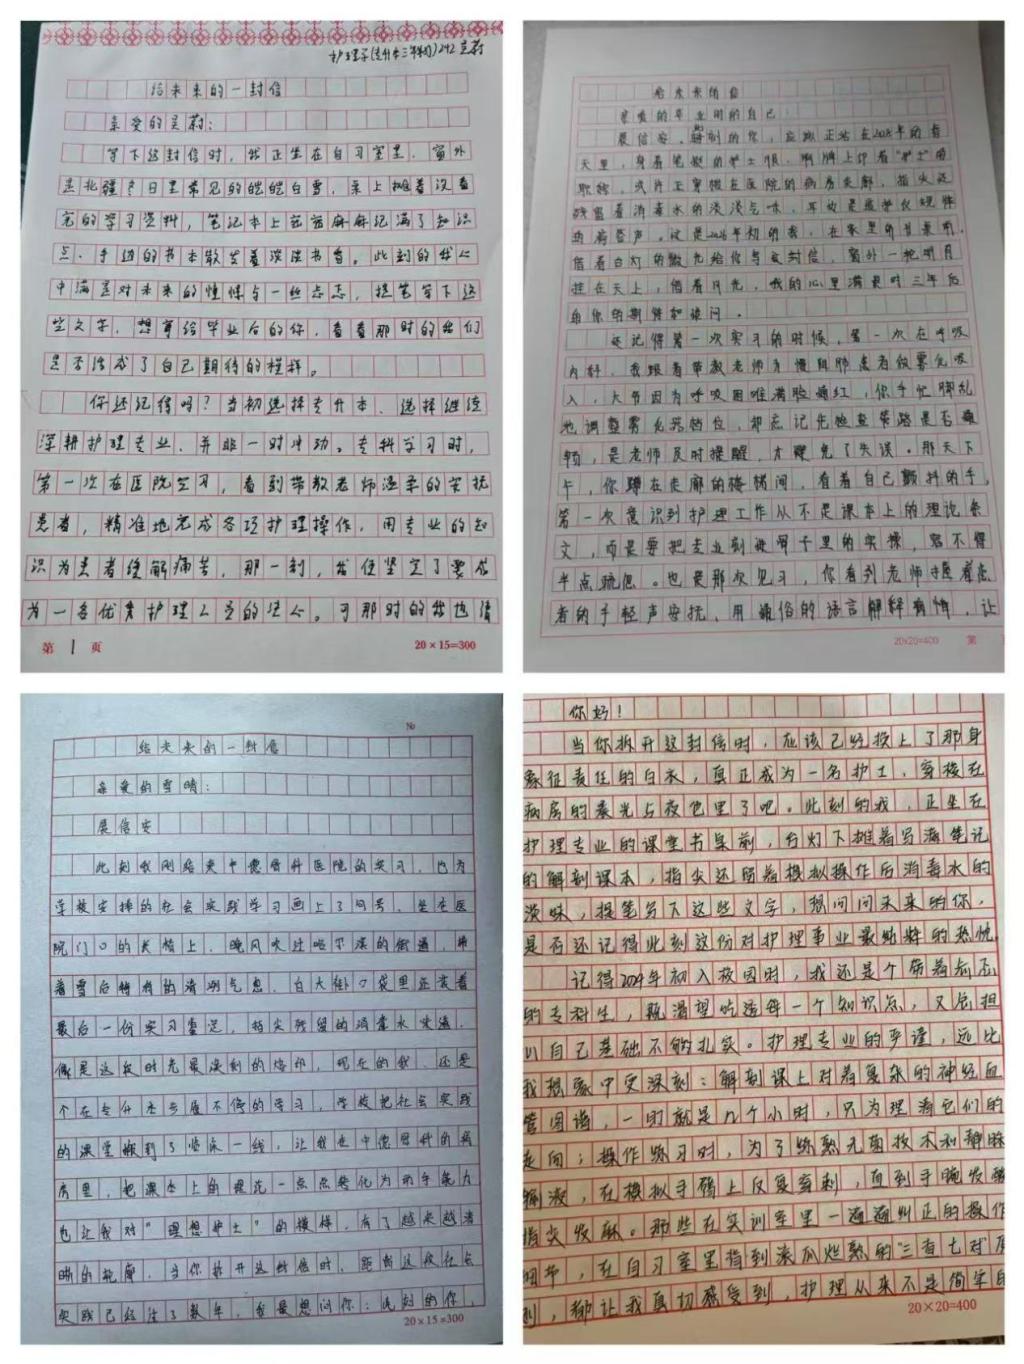 护理学(专升本三年制)242 吴蔚
给未来的一封信
亲爱的吴蔚：
写下这封信时，我正坐在自习室里，窗外
是北疆冬日里常见的皑皑白雪，桌上摊着没看
完的学习资料，笔记本上密密麻麻记满了知识
点，手边的书本散发着淡淡书香。此刻的我心
中满是对未来的憧憬与一丝忐忑，提笔写下这
些文字，想寄给毕业后的你，看看那时的我们
是否活成了自己期待的模样。
你还记得吗？当初选择专升本、选择继续
深耕护理专业，并非一时冲动。专科学习时，
第一次在医院实习，看到带教老师温柔的安抚
患者，精准地完成各项护理操作，用专业的知
识为患者缓解痛苦，那一刻，我便坚定了要成
为一名优秀护理人员的决心。可那时的我也清
第 1 页
20×15=300
给未来的信
亲爱的毕业时的自己：
展信安。此刻的你，应该正站在2028年的春
天里，身着笔挺的护士服，胸牌上印着“护士”的
职称，或许正穿梭在医院的病房走廊，指尖还
残留着消毒水的淡淡气味，耳边是医学仪规律
的滴答声。这是2026年初的我，在家里的书桌前，
借着台灯的微光给你写这封信，窗外一轮明月
挂在天上，借着月光，我的心里满是对三年后
的你的期待和疑问。
还记得第一次实习的时候，第一次在呼吸
内科，我跟着带教老师为慢阻肺患者做雾化吸
入，大爷因为呼吸困难满脸通红，你手忙脚乱
地调整雾化器档位，却忘记先检查管路是否通
畅，是老师及时提醒，才避免了失误。那天下
午，你蹲在走廊的楼梯间，看着自己颤抖的手，
第一次意识到护理工作从不是课本上的理论条
文，而是要把专业刻进骨子里的实操，容不得
半点疏忽。也是那次见习，你看到老师握着患
者的手轻声安抚，用通俗的语言解释病情，让
20×20=400
第
№
给未来的一封信
亲爱的雪晴：
展信安
此刻我刚结束中德骨科医院的实习，也为
学校安排的社会实践学习画上了句号。坐在医
院门口的长椅上，晚风吹过哈尔滨的街道，带
着雪后特有的清冽气息，白大褂口袋里还装着
最后一份实习鉴定，指尖残留的消毒水味道，
像是这段时光最深刻的烙印，现在的我，还是
个在专升本专属不停的学习，学校把社会实践
的课堂搬到了临床一线，让我在中德骨科的病
房里，把课本上的理论一点点转化为动手能力
也让我对“理想护士”的模样，有了越来越清
晰的轮廓。当你拆开这封信时，距离这段社会
实践已经过了数年，我最想问你：此刻的你，
20×15=300
你好！
当你拆开这封信时，应该已经换上了那身
象征责任的白衣，真正成为一名护士，穿梭在
病房的晨光与夜色里了吧。此刻的我，正坐在
护理专业的课堂书桌前，台灯下摊着写满笔记
的解剖课本，指尖还留着模拟操作后消毒水的
淡味，提笔写下这些文字，想问问未来的你，
是否还记得此刻这份对护理事业最纯粹的热忱
记得2024年初入校园时，我还是个带着忐忑
的专科生，既渴望吃透每一个知识点，又总担
心自己基础不够扎实。护理专业的严谨，远比
我想象中更深刻：解剖课上对着复杂的神经血
管图谱，一盯就是几个小时，只为理清它们的
走向；操作练习时，为了练熟无菌技术和静脉
输液，在模拟手臂上反复穿刺，直到手腕发酸
指尖发麻。那些在实训室里一遍遍纠正的操作
细节，在自习室里背到滚瓜烂熟的“三查七对”原
则，都让我真切感受到，护理从来不是简单的
20×20=400